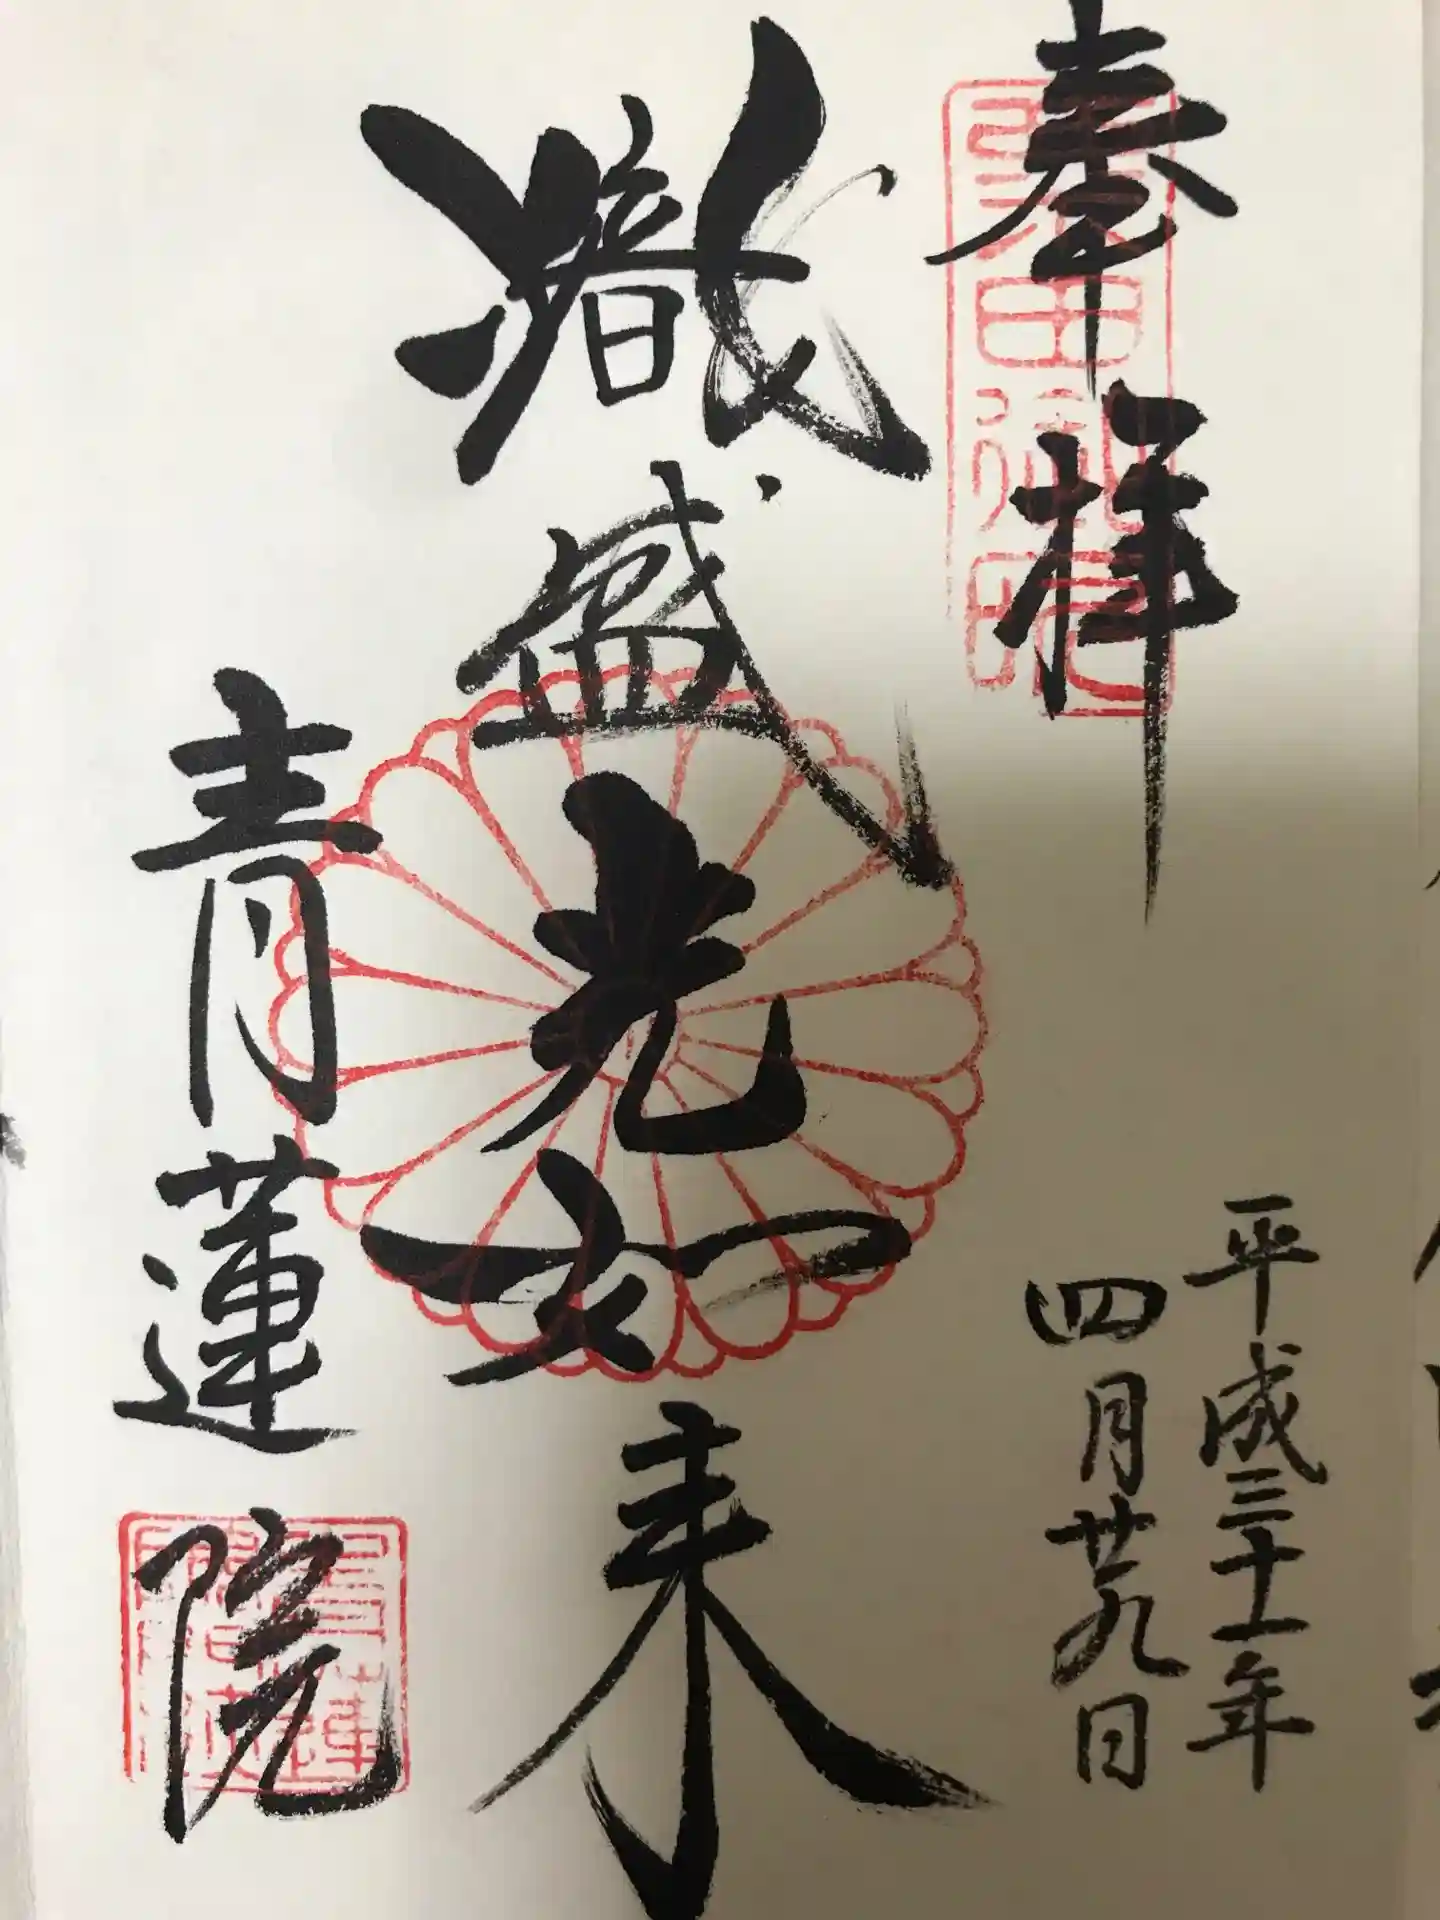 奉拝
平成三十一年
四月廿九日
熾盛光如来
青蓮院
粟田御所